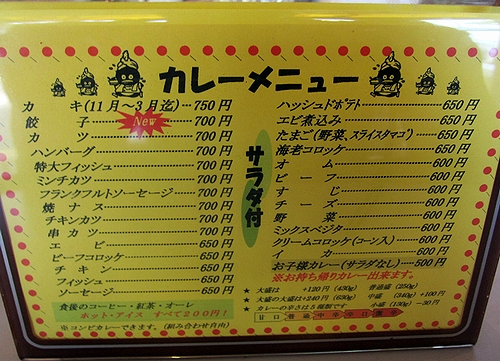 カレーメニュー
カ キ(11月～3月迄)…750円
餃 子…………700円
New
カ ツ…………700円
ハンバーグ…………700円
特大フィッシュ…………700円
ミンチカツ…………700円
フランクフルトソーセージ……700円
焼 ナス…………700円
チキンカツ…………700円
串カツ…………700円
エ ビ…………650円
ビーフコロッケ…………650円
チキン…………650円
フィッシュ…………650円
ソーセージ…………650円
サラダ付
ハッシュドポテト…………650円
エビ煮込み…………650円
たまご(野菜、スライスタマゴ)…650円
海老コロッケ…………650円
オ ム…………600円
ビ ー フ…………600円
す じ…………600円
チ ー ズ…………600円
野 菜…………600円
ミックスベジタ…………600円
クリームコロッケ(コーン入)……600円
イ カ…………600円
お子様カレー(サラダなし)……500円
※お持ち帰りカレー出来ます。
食後のコーヒー・紅茶・オーレ
ホット・アイス すべて200円!
※コンビカレーできます。(組み合わせ自由)
★ 大盛は +120円 (430g) 普通盛 (250g)
★ 大盛の大盛は+240円 (630g) 中盛 (340g) +100円
★ カレーの辛さは5種類です 小盛 (130g) −30円
甘口 普通 中辛 辛口